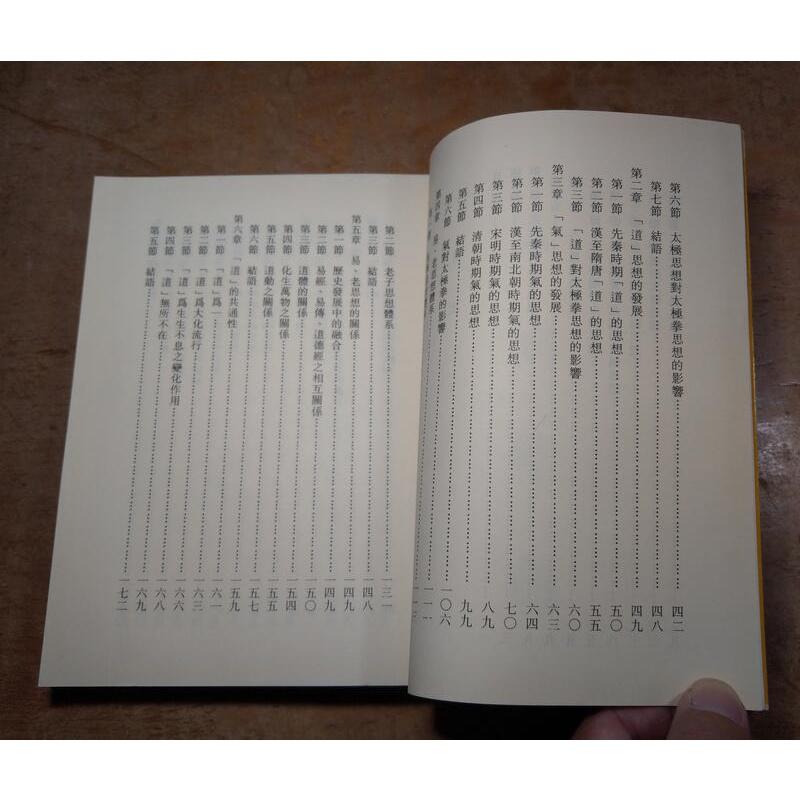 第六節　太極思想對太極拳思想的影響……四二
第七節　結語……四八
第二章　「道」思想的發展……四九
第一節　先秦時期「道」的思想……五〇
第二節　漢至隋唐「道」的思想……五五
第三節　「道」對太極拳思想的影響……六〇
第三章　「氣」思想的發展……六三
第一節　先秦時期氣的思想……六四
第二節　漢至南北朝時期氣的思想……七〇
第三節　宋明時期氣的思想……八九
第四節　清朝時期氣的思想……九九
第五節　結語
第六節　氣對太極拳的影響……一〇六
第四章　易、老思想體系
第二節　老子思想體系……一三一
第三節　結語……一四八
第五章　易、老思想的關係……一四九
第一節　歷史發展中的融合……一四九
第二節　易經、易傳、道德經之相互關係……一五〇
第三節　道體的關係……一五四
第四節　化生萬物之關係……一五五
第五節　道動之關係……一五七
第六節　結語……一五九
第六章　「道」的共通性……一六一
第一節　「道」爲一……一六三
第二節　「道」爲大化流行……一六六
第三節　「道」爲生生不息之變化作用……一六八
第四節　「道」無所不在……一六九
第五節　結語……一七二